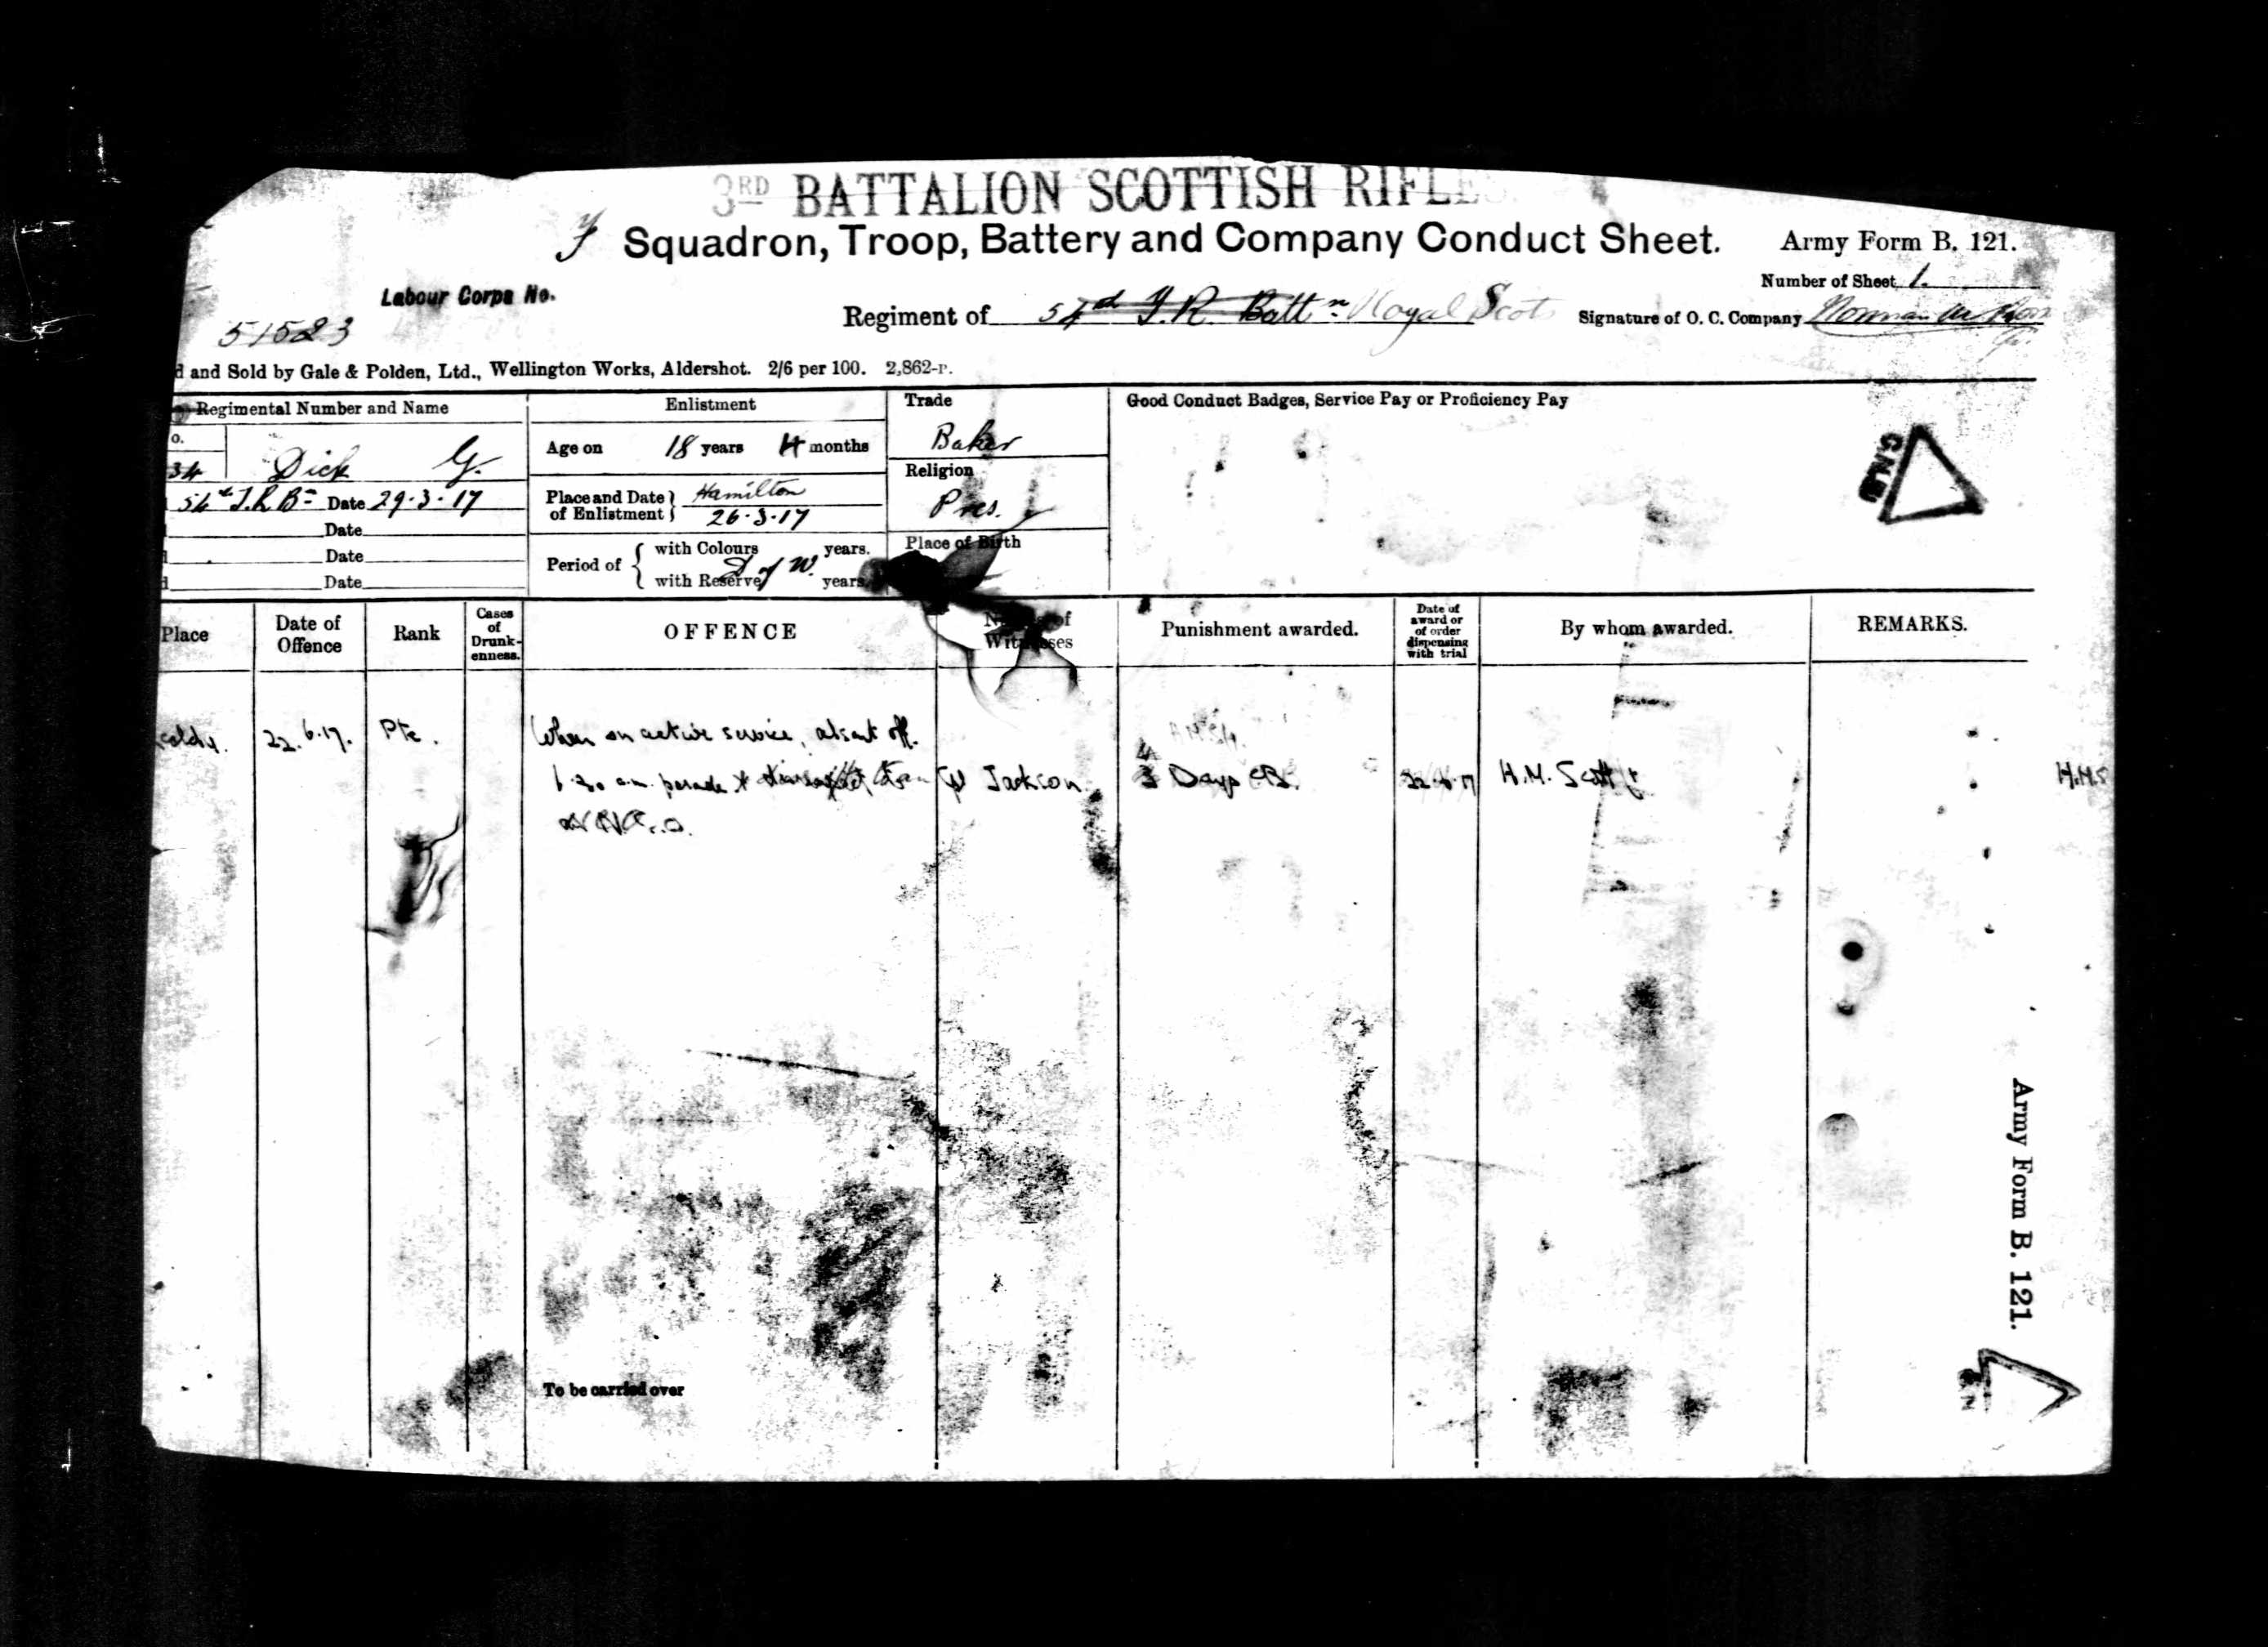 3RD BATTALION SCOTTISH RIFLE
Squadron, Troop, Battery and Company Conduct Sheet.
Army Form B. 121.
Number of Sheet 1.
Labour Corps No.
51523
Regiment of 54th T.R. Battn Royal Scots
Signature of O. C. Company Norman
d and Sold by Gale & Polden, Ltd., Wellington Works, Aldershot. 2/6 per 100. 2,862-P.
Regimental Number and Name
Enlistment
Trade
Good Conduct Badges, Service Pay or Proficiency Pay
o.
34 Dick G.
Age on 18 years 4 months
Baker
Religion
Pres.
C.M.
54th T.R. Bn Date 29.3.17
Date
Date
Date
Place and Date of Enlistment Hamilton
26.3.17
Period of with Colours years.
with Reserve years.
D of W.
Place of Birth
Place
Date of Offence
Rank
Cases of Drunk-enness.
OFFENCE
Names of Witnesses
Punishment awarded.
Date of award or of order dispensing with trial
By whom awarded.
REMARKS.
22.6.17. Pte. When on active service, absent off.
6.30 a.m. parade Jackson 3 Days C.B. 22.6.17 H.M. Scott H.M.S
N.C.O.
To be carried over
Army Form B. 121.